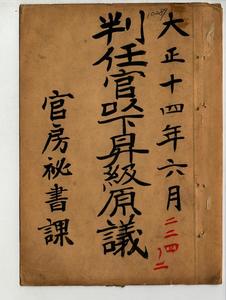 大正十四年六月
判任官以下昇級原議
官房祕書課
二二四